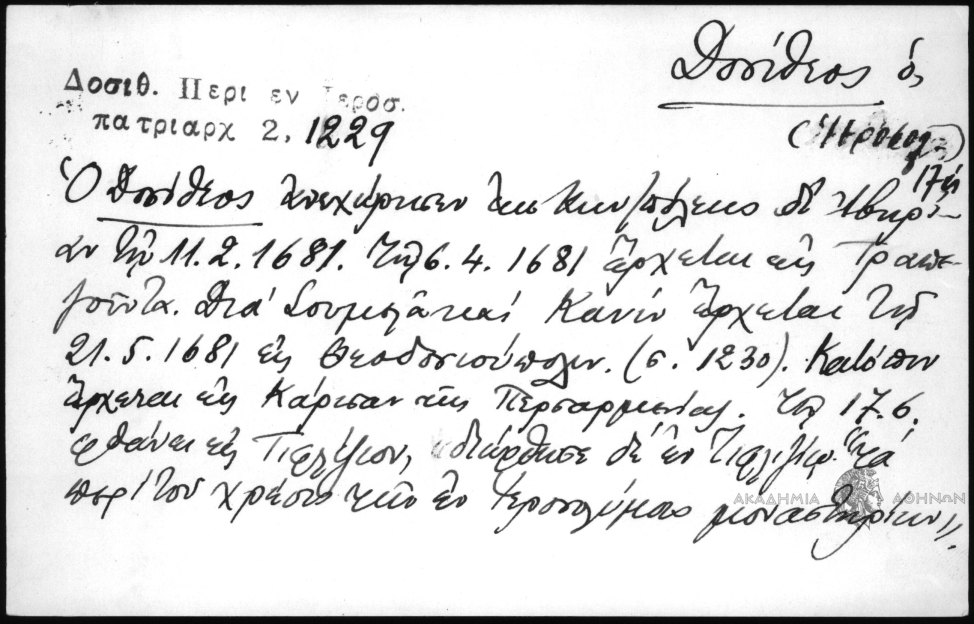 Δοσίθεος ὁ
Δοσιθ. Περι εν Ιεροσ.
πατριαρχ 2, 1229
(Ἱεροσολ.)
17ης
Ὁ Δοσίθεος ἀνεχώρησεν ἐκ Κων/πόλεως δι' Ἰβηρί-
αν τὴν 11.2.1681. Τῇ 6.4.1681 ἔρχεται εἰς Τραπε-
ζοῦντα. Διὰ Σουμελᾶ καὶ Κανίν ἔρχεται τῇ
21.5.1681 εἰς Θεοδοσιούπολιν. (σ. 1230). Κατόπιν
ἔρχεται εἰς Κάρσαν τῆς Περσαρμενίας. Τῇ 17.6.
φθάνει εἰς Τιφλίζιον, "διώρθωσε δὲ ἐν Τιφλιζίῳ τὰ
περὶ τοῦ χρέους τῶν ἐν Ἱεροσολύμοις μοναστηρίων".
ΑΚΑΔΗΜΙΑ ΑΘΗΝΩΝ